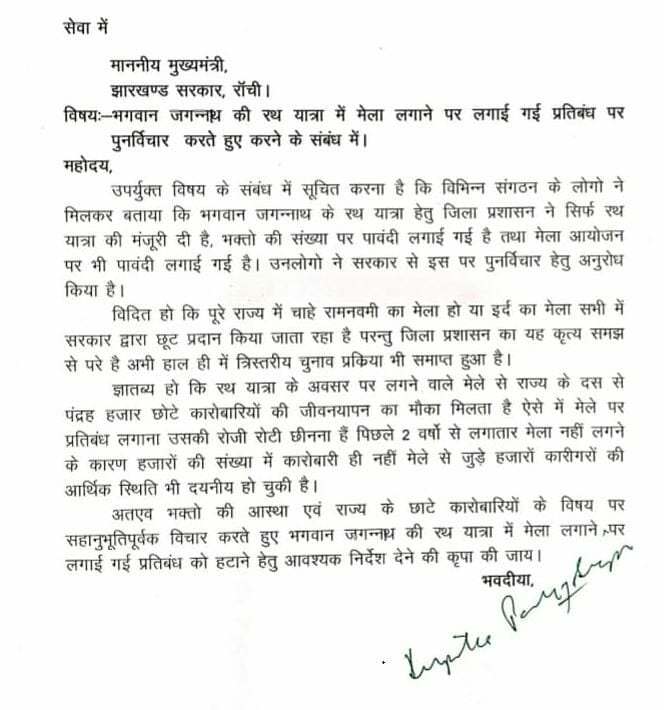 सेवा में
माननीय मुख्यमंत्री,
झारखण्ड सरकार, रॉची।
विषयः–भगवान जगन्नाथ की रथ यात्रा में मेला लगाने पर लगाई गई प्रतिबंध पर
पुनर्विचार करते हुए करने के संबंध में।
महोदय,
उपर्युक्त विषय के संबंध में सूचित करना है कि विभिन्न संगठन के लोगो ने
मिलकर बताया कि भगवान जगन्नाथ के रथ यात्रा हेतु जिला प्रशासन ने सिर्फ रथ
यात्रा की मंजूरी दी है, भक्तो की संख्या पर पावंदी लगाई गई है तथा मेला आयोजन
पर भी पावंदी लगाई गई है। उनलोगो ने सरकार से इस पर पुनर्विचार हेतु अनुरोध
किया है।
विदित हो कि पूरे राज्य में चाहे रामनवमी का मेला हो या इर्द का मेला सभी में
सरकार द्वारा छूट प्रदान किया जाता रहा है परन्तु जिला प्रशासन का यह कृत्य समझ
से परे है अभी हाल ही में त्रिस्तरीय चुनाव प्रकिया भी समाप्त हुआ है।
ज्ञातब्य हो कि रथ यात्रा के अवसर पर लगने वाले मेले से राज्य के दस से
पंद्रह हजार छोटे कारोबारियों की जीवनयापन का मौका मिलता है ऐसे में मेले पर
प्रतिबंध लगाना उसकी रोजी रोटी छीनना हैं पिछले 2 वर्षो से लगातार मेला नहीं लगने
के कारण हजारों की संख्या में कारोबारी ही नहीं मेले से जुड़े हजारों कारीगरों की
आर्थिक स्थिति भी दयनीय हो चुकी है।
अतएव भक्तो की आस्था एवं राज्य के छाटे कारोबारियों के विषय पर
सहानुभूतिपूर्वक विचार करते हुए भगवान जगन्नाथ की रथ यात्रा में मेला लगाने पर
लगाई गई प्रतिबंध को हटाने हेतु आवश्यक निर्देश देने की कृपा की जाय।
भवदीया,